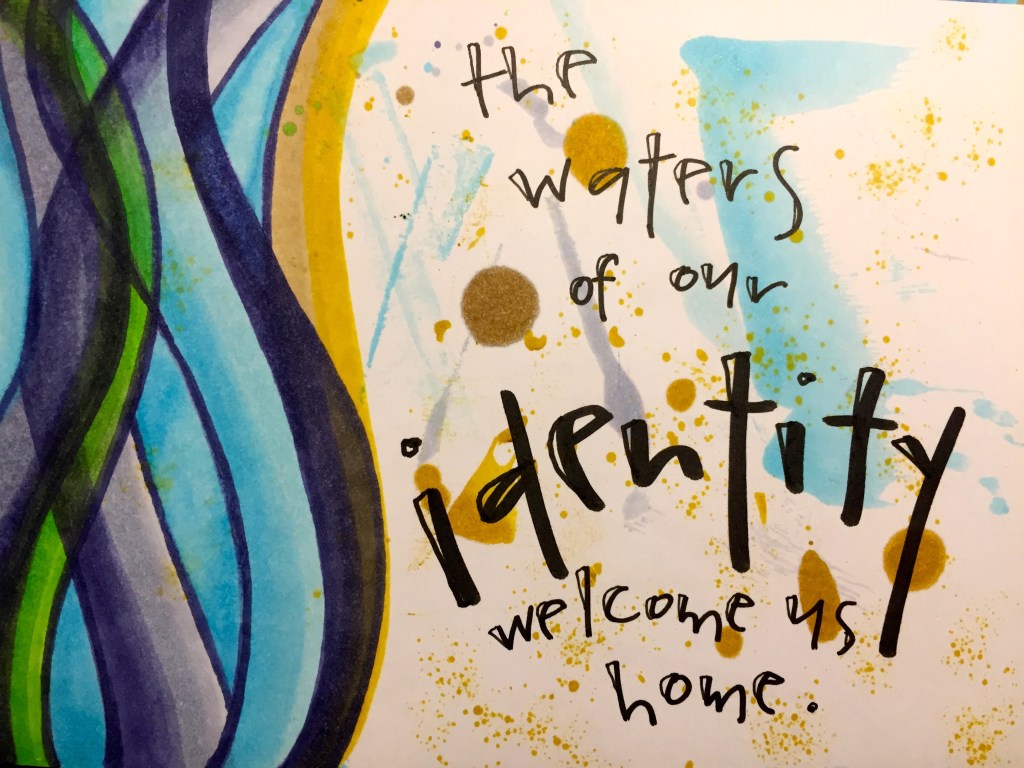 the
waters
of our
identity
welcome us
home.